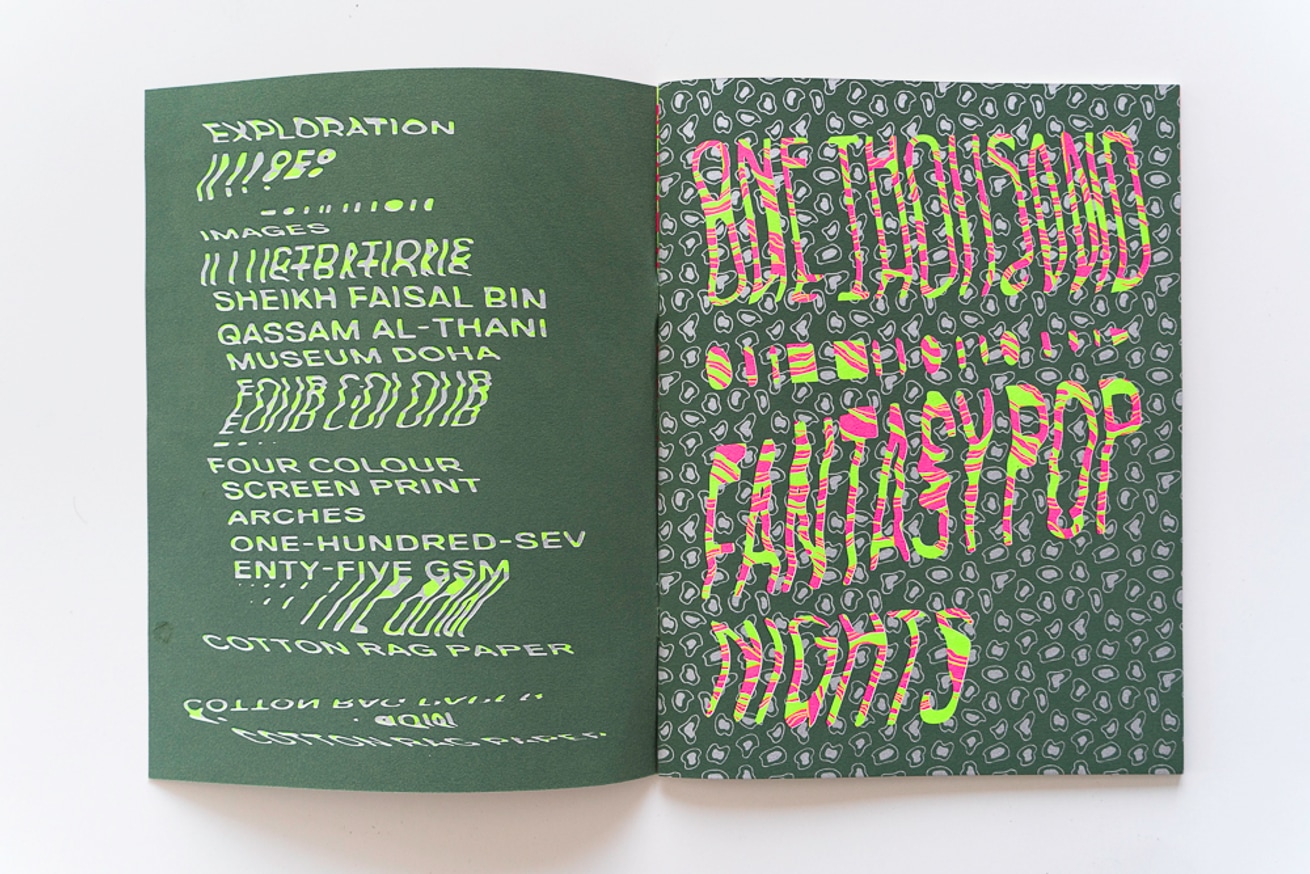 EXPLORATION
IMAGES
SHEIKH FAISAL BIN
QASSAM AL-THANI
MUSEUM DOHA
FOUR COLOUR
FOUR COLOUR
SCREEN PRINT
ARCHES
ONE-HUNDRED-SEV
ENTY-FIVE GSM
COTTON RAG PAPER
COTTON RAG PAPER
COTTON RAG PAPER
ONE THOUSAND
FANTASY POP
NIGHTS